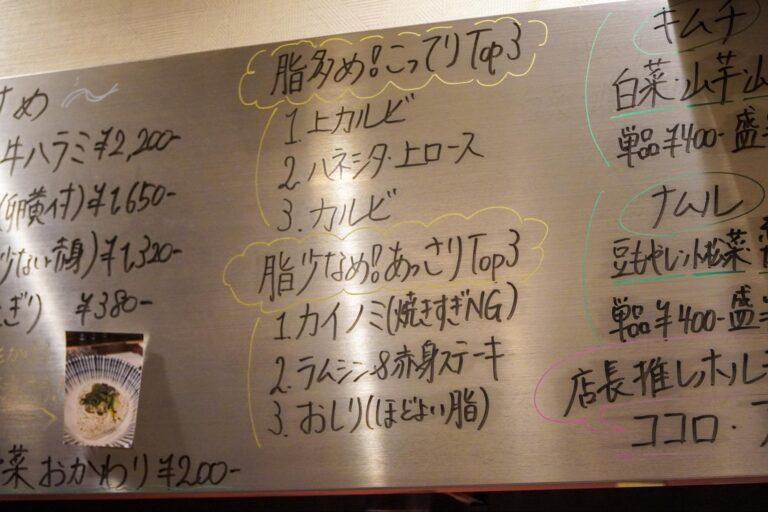 すめ
牛ハラミ ¥2,200-
(卵黄付) ¥1,650-
少ない赤身) ¥1,320-
ぎり) ¥380-
菜 おかわり ¥200-
脂多め!こってりTop3
1. 上カルビ
2. ハネシタ・上ロース
3. カルビ
脂少なめ!あっさりTop3
1. カイノミ(焼きすぎNG)
2. ラムシン&赤身ステーキ
3. おしり(ほどよい脂)
キムチ
白菜・山芋・山
単品¥400- 盛
ナムル
豆もやし、小松菜
単品¥400- 盛
店長推しホル
ココロ・